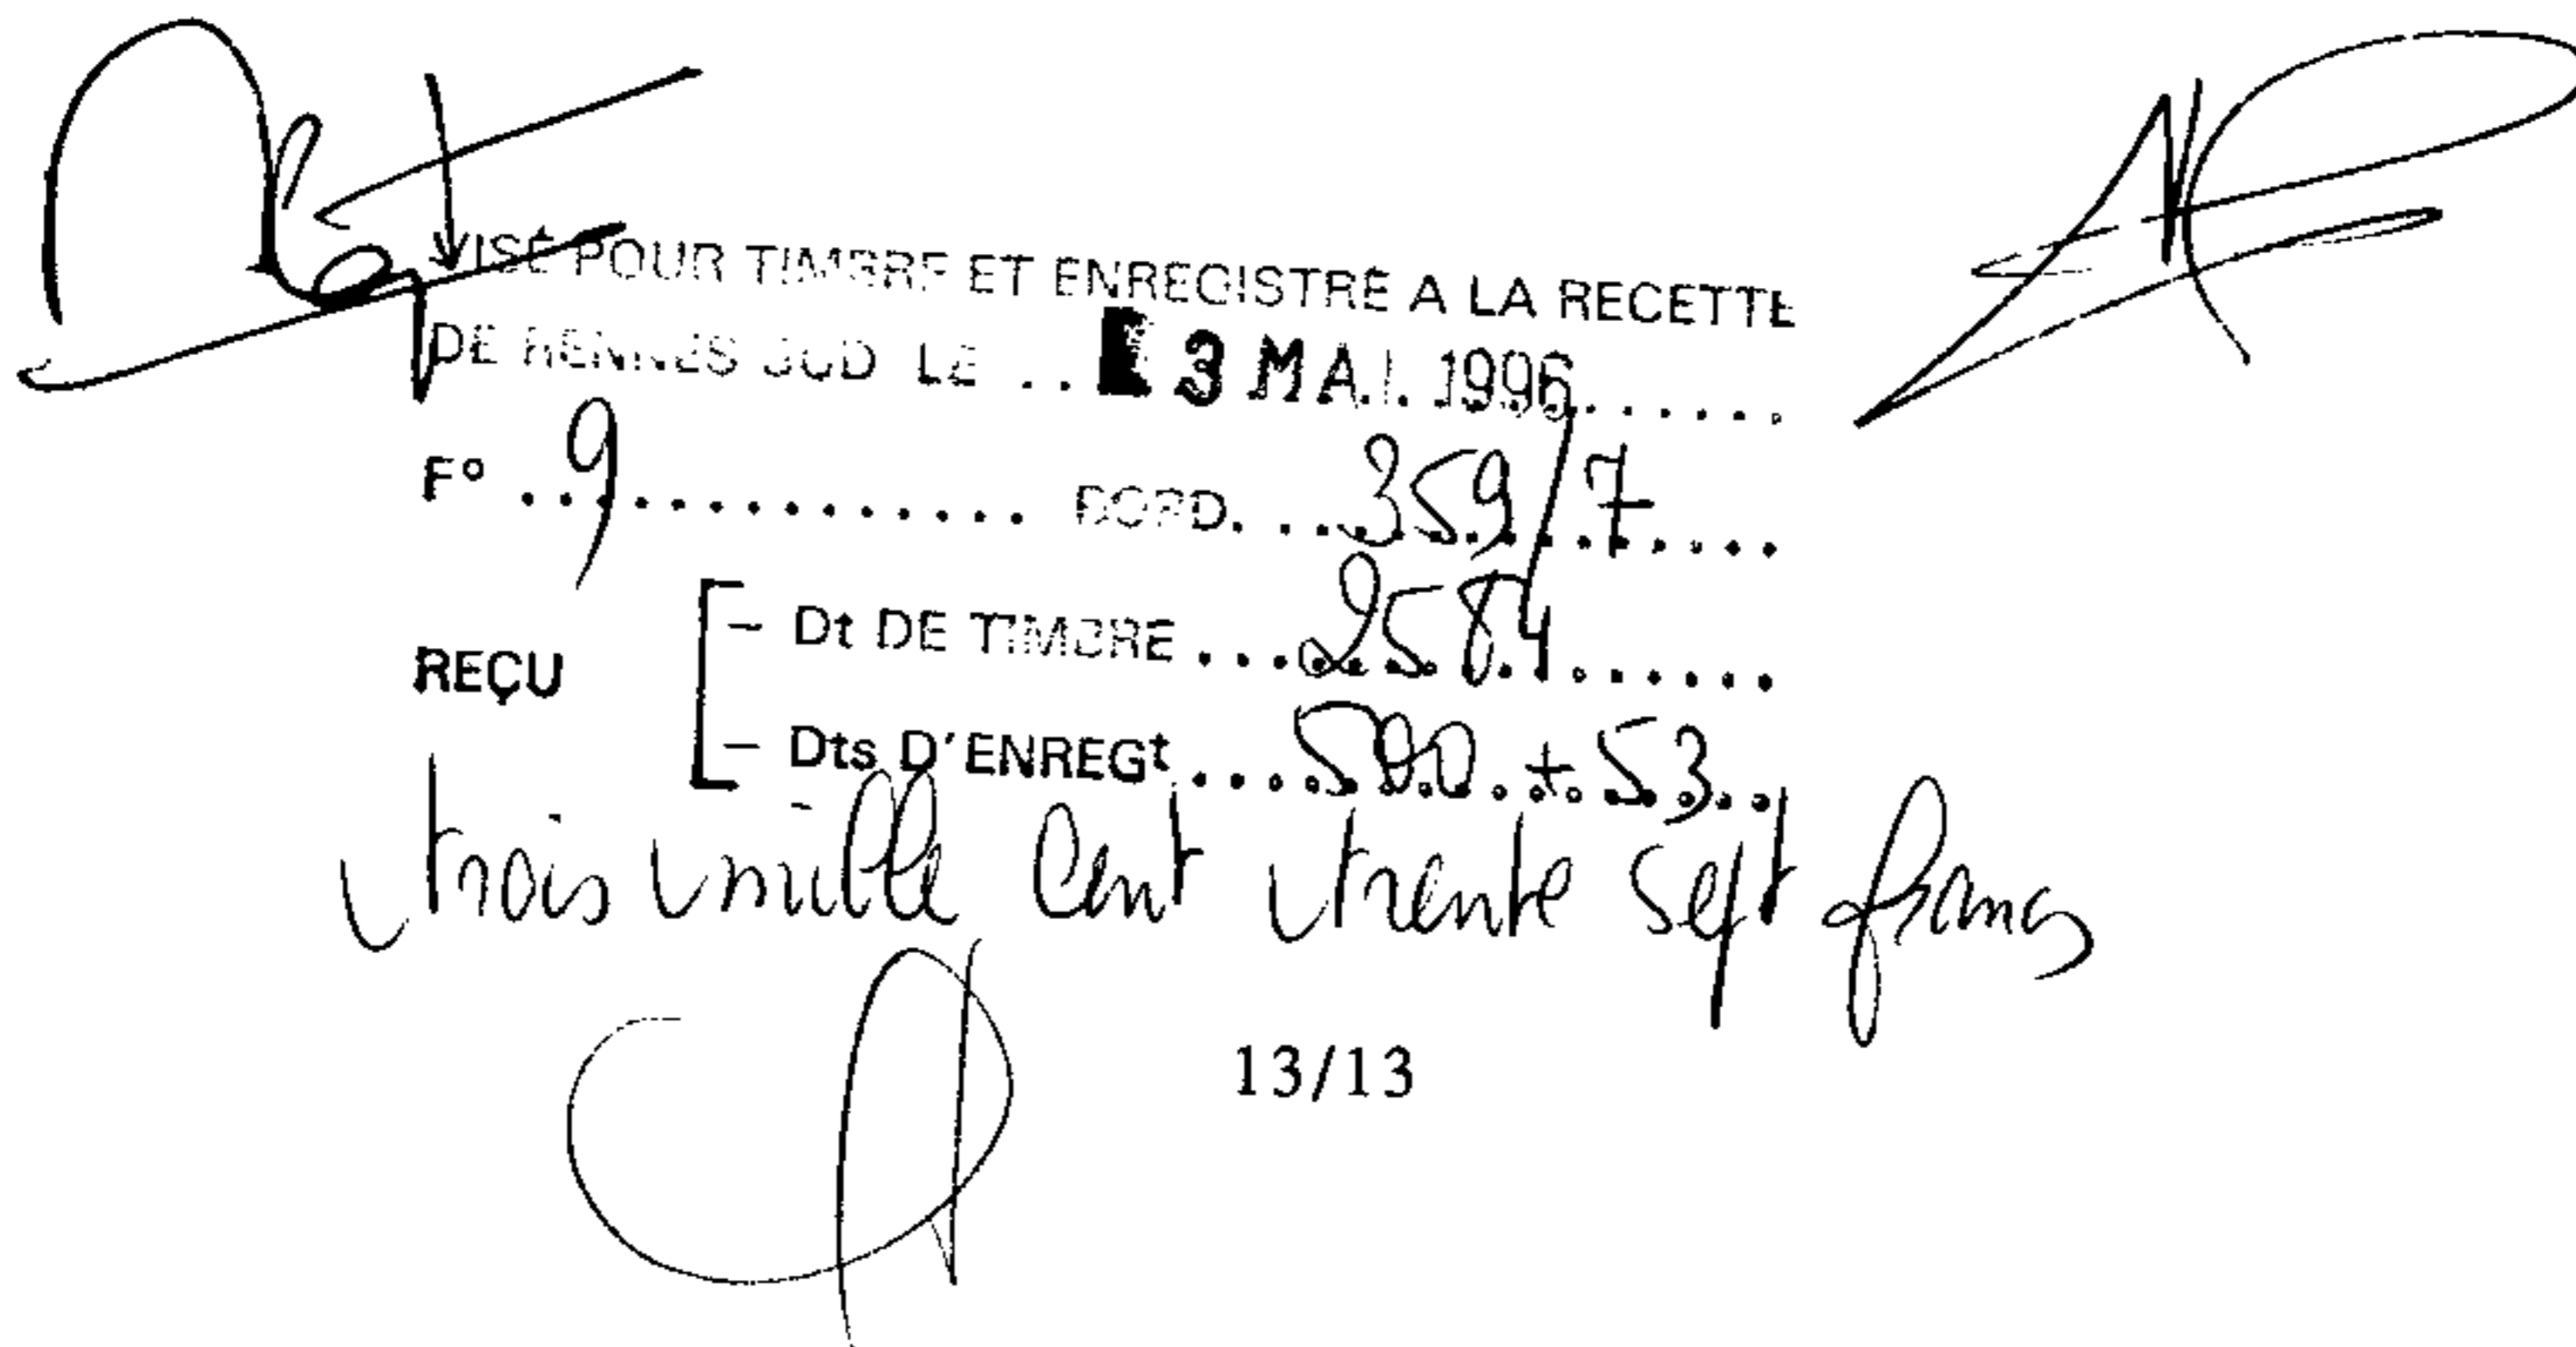 VISÉ POUR TIMBRE ET ENREGISTRÉ A LA RECETTE
DE RENNES SUD LE .. 3 MAI 1996
F° 9 BORD. 359/7
REÇU
- Dt DE TIMBRE ... 2584
- Dts D'ENREGt .... 500 + 53
trois mille cent trente sept francs
13/13